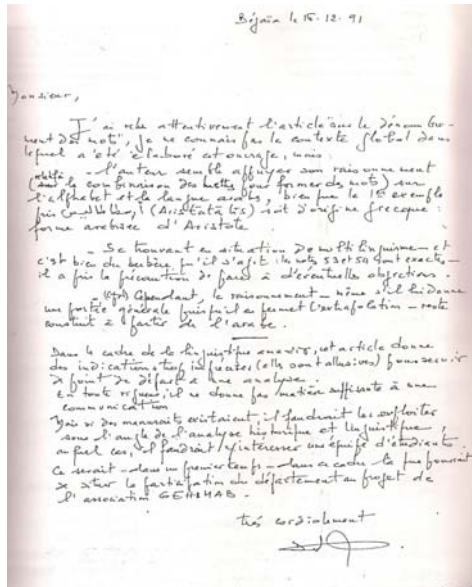 Béjaïa le 15.12.91
Monsieur,
J'ai relu attentivement l'article que le dénombre-
ment des mots", je ne connais pas le contexte global dans
lequel a été élaboré cet ouvrage, mais :
- l'auteur semble appuyer son raisonnement
(sur la combinaison des lettres pour former des mots) sur
l'alphabet et la langue arabe, bien que le 1er exemple
pris (Aristata lis) soit d'origine grecque :
forme arabisée d'Aristote
- Se trouvant en situation de multilinguisme - et
c'est bien du berbère qu'il s'agit : les notes 53 et 54 sont exactes -
il a pris la précaution de parer à d'éventuelles objections.
- Cependant, le raisonnement - même s'il lui donne
une portée générale puisqu'il en permet l'extrapolation - reste
construit à partir de l'arabe.
Dans le cadre de la linguistique amazigh, cet article donne
des indications (elles sont allusives) pour servir
de point de départ à une analyse.
En toute rigueur, il ne donne pas matière suffisante à une
communication
Mais si des manuscrits existaient il faudrait les exploiter
sous l'angle de l'analyse historique et linguistique,
auquel cas, il faudrait y intéresser une équipe d'étudiants.
Ce serait - dans un premier temps - dans ce cadre là que pourrait
se situer la participation du département au projet de
l'association GEHIMAB.
très cordialement